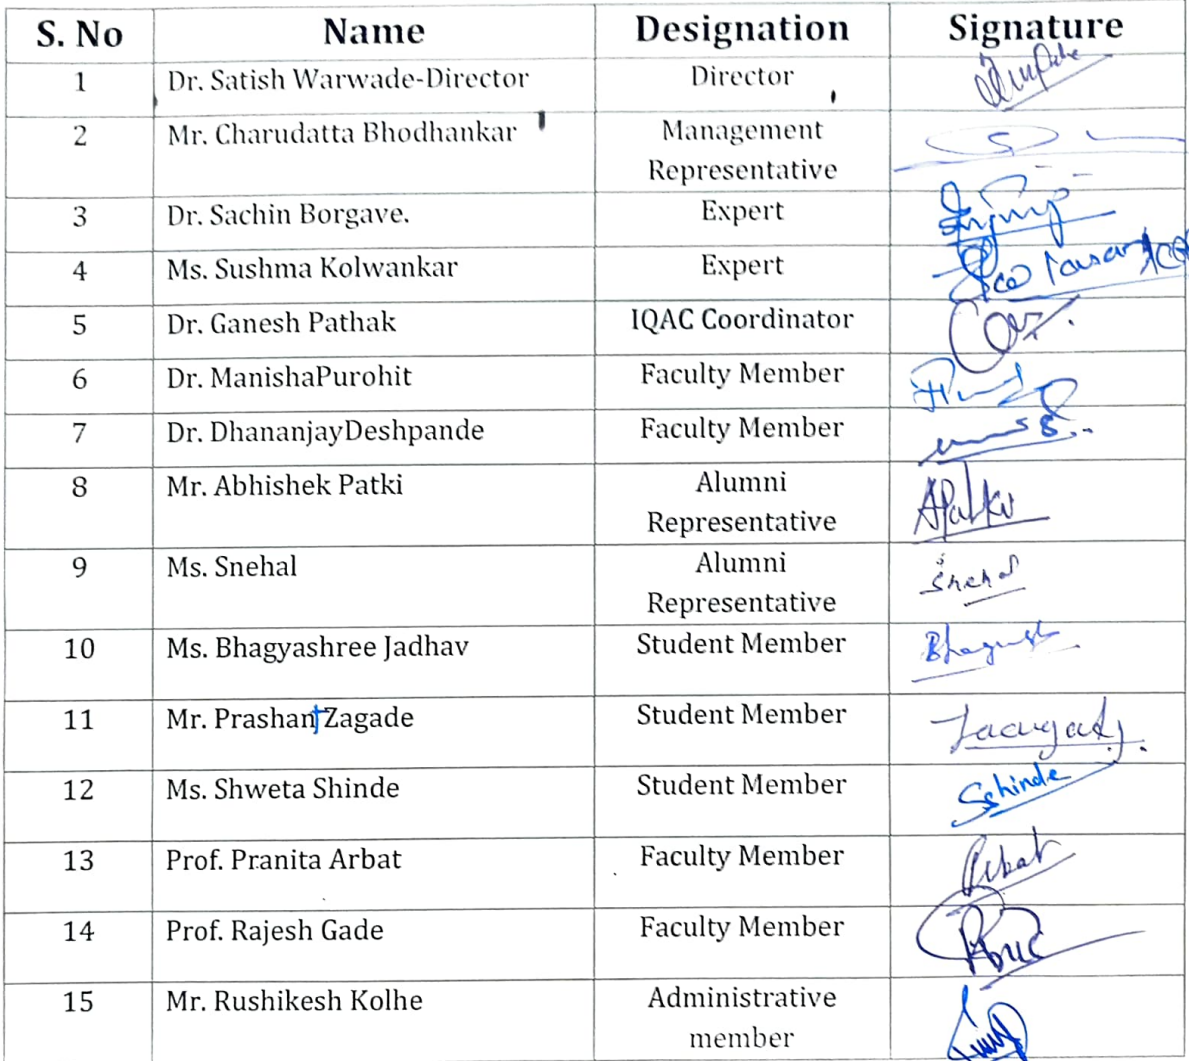 S. No Name Designation Signature
1 Dr. Satish Warwade-Director Director
2 Mr. Charudatta Bhodhankar Management
Representative
3 Dr. Sachin Borgave. Expert
4 Ms. Sushma Kolwankar Expert
5 Dr. Ganesh Pathak IQAC Coordinator
6 Dr. ManishaPurohit Faculty Member
7 Dr. DhananjayDeshpande Faculty Member
8 Mr. Abhishek Patki Alumni
Representative APatki
9 Ms. Snehal Alumni
Representative Snehal
10 Ms. Bhagyashree Jadhav Student Member
11 Mr. Prashant Zagade Student Member
12 Ms. Shweta Shinde Student Member SShinde
13 Prof. Pranita Arbat Faculty Member
14 Prof. Rajesh Gade Faculty Member
15 Mr. Rushikesh Kolhe Administrative
member